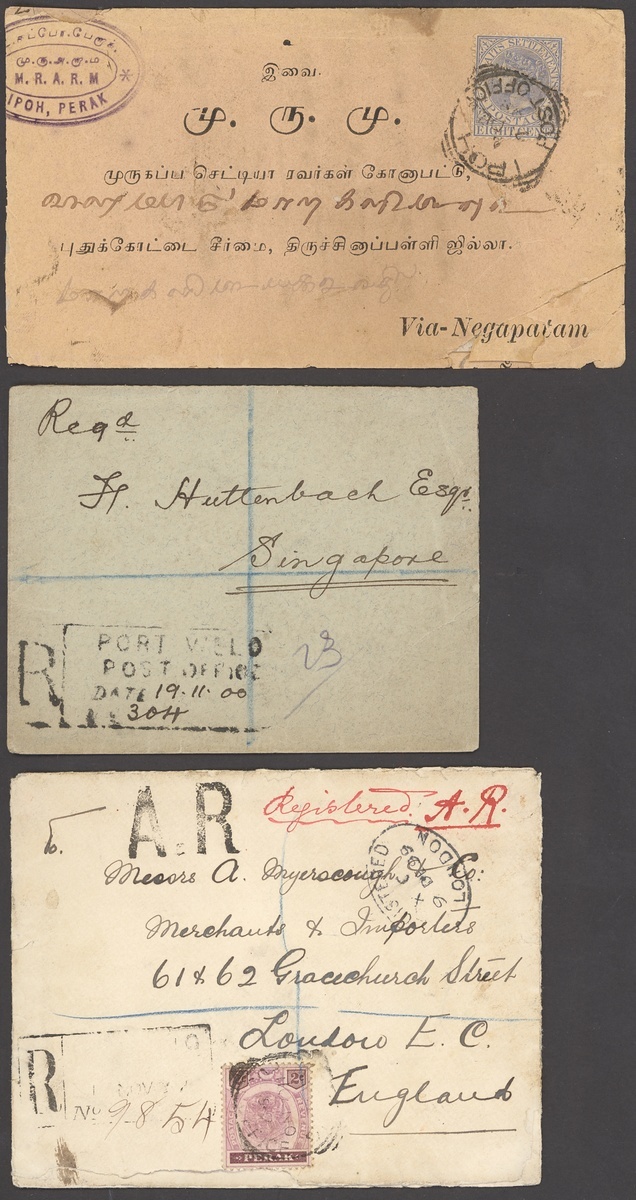 மு.ரு.அ.ரு.ம
M.R.A.R.M *
IPOH, PERAK
இவை.
மு. ரு. மு.
STRAITS SETTLEMENTS
POSTAGE
EIGHT CENTS
IPOH
POST OFFICE
முருகப்ப செட்டியா ரவர்கள் கோனாபட்டு,
புதுக்கோட்டை சீர்மை, திருச்சினாப்பள்ளி ஜில்லா.
Via-Negapatam
Regd
H. Huttenbach Esqr.
Singapore
R
PORT WELD
POST OFFICE
DATE 19.11.00
304
23
A.R
Registered A.R.
To.
Messrs A. Myerscough & Co:
REGISTERED
LONDON
9 DE 99
Merchants & Importers
61 & 62 Gracechurch Street
London E.C.
England
R
No 9854
PERAK